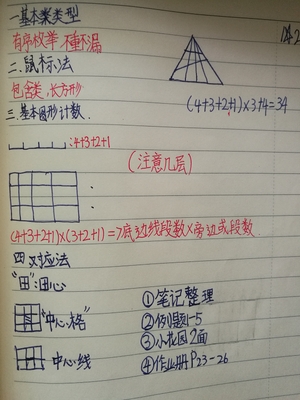 一基本类型
有序枚举 不重不漏
二.鼠标法
包含类,长方形
三.基本图形计数.
:4+3+2+1
(4+3+2+1)×3+4=34
(注意几层)
(4+3+2+1)×(3+2+1)=底边线段数×旁边线段数
四 对应法
"田":田心
"中心格"
中心线
①笔记整理
②例题1-5
③小花园2面
④作业册P23-26